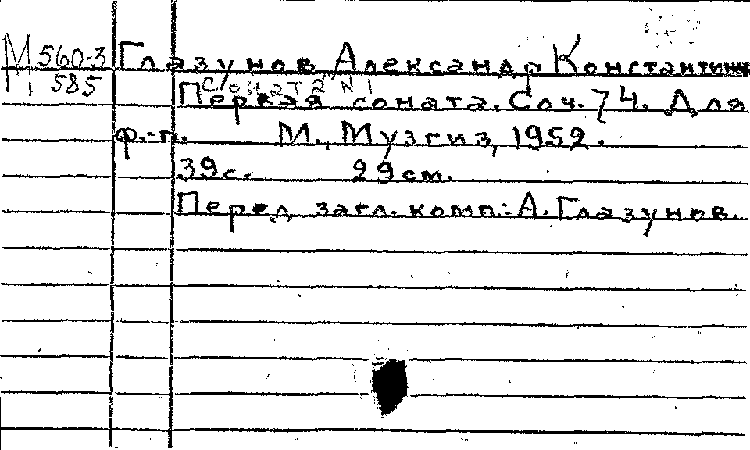 М 560-3 Глазунов Александр Константинович
585 Соната N 1
Первая соната. Соч. 74. Для
ф.-п. М., Музгиз, 1952.
39с. 29см.
Перед загл. комп.: А. Глазунов.